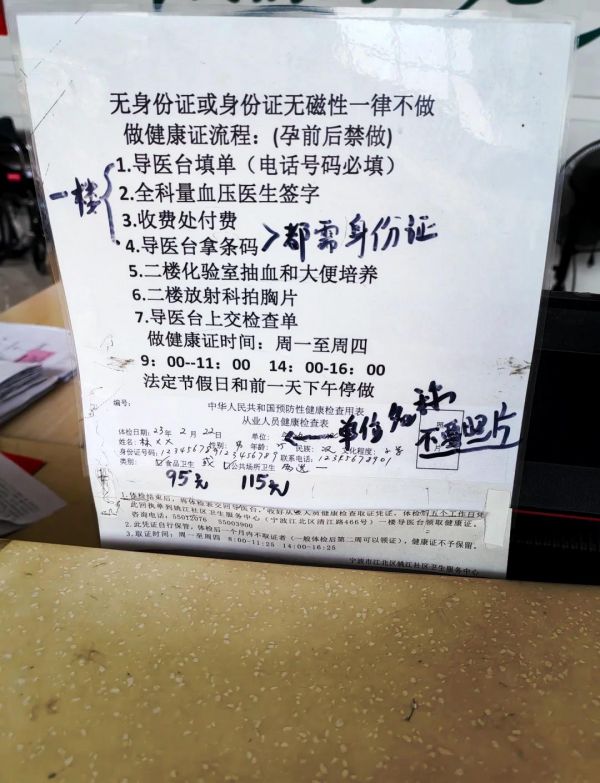 无身份证或身份证无磁性一律不做
做健康证流程：(孕前后禁做)
一楼
1.导医台填单（电话号码必填）
2.全科量血压医生签字
3.收费处付费
4.导医台拿条码
都需身份证
5.二楼化验室抽血和大便培养
6.二楼放射科拍胸片
7.导医台上交检查单
做健康证时间：周一至周四
9：00--11：00 14：00-16：00
法定节假日和前一天下午停做
编号：
中华人民共和国预防性健康检查用表
从业人员健康检查表
体检日期：23年 2月 22 单位：
单位名称
姓名：林XX 性别：男 年龄： 民族：汉 文化程度：
不要照片
身份证号码： 联系电话：12345678901
类别：☑食品卫生 或 ☑公共场所卫生 两选一
95元 115元
1.体检结束后，将体检表交回导医台，收好从业人员健康检查取证凭证，体检后五个工作日凭
此回执单到姚江社区卫生服务中心（宁波江北区清江路466号）一楼导医台领取健康证。
咨询电话：55012076 55003900
2.此凭证自行保管，体检后一个月内不取证者（一般体检后第二周可以领证），健康证不予保留。
3.取证时间：周一至周四 8:00-11:25 14:00-16:25
宁波市江北区姚江社区卫生服务中心